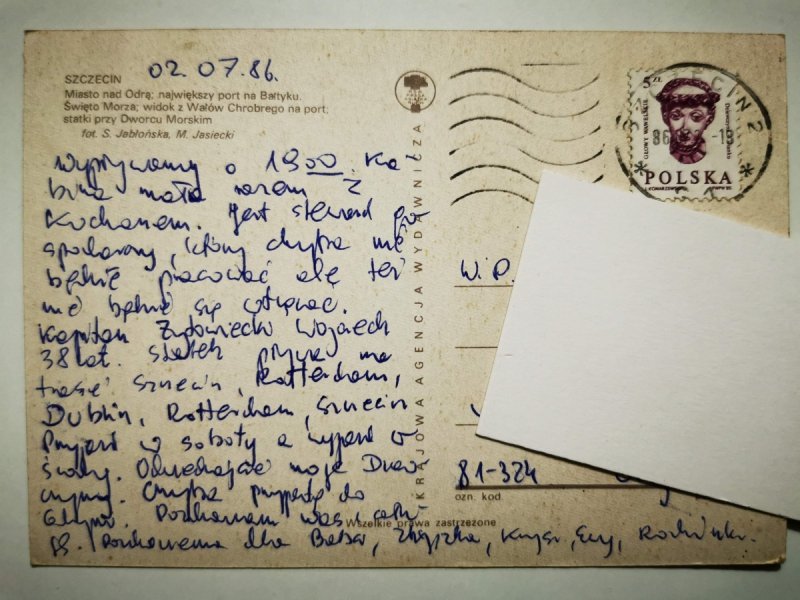 02.07.86.
SZCZECIN
Miasto nad Odrą; największy port na Bałtyku.
Święto Morza; widok z Wałów Chrobrego na port;
statki przy Dworcu Morskim
fot. S. Jabłońska, M. Jasiecki
Wypływamy o 1900. Ka
bina mała razem z
Kucharzem. Jest steward
spodarczy, który chyba nie
będzie pracować ale też
nie będzie się wtrącać.
Kapitan Wojciech
38 lat. Statek pływa na
trasie Szczecin, Rotterdam,
Dublin, Rotterdam, Szczecin
Przyjazd w soboty a wyjazd w
środy. Odwiedzajcie moje
Chyba przyjadę do
Gdyni. Pozdrawiam was i
PS. Pozdrowienia dla Babci, Zbyszka, Ewy,
KRAJOWA AGENCJA WYDAWNICZA
5 ZŁ
GŁOWY WAWELSKIE
POLSKA
SZCZECIN 2
W.P.
81-324
ozn. kod
Wszelkie prawa zastrzeżone